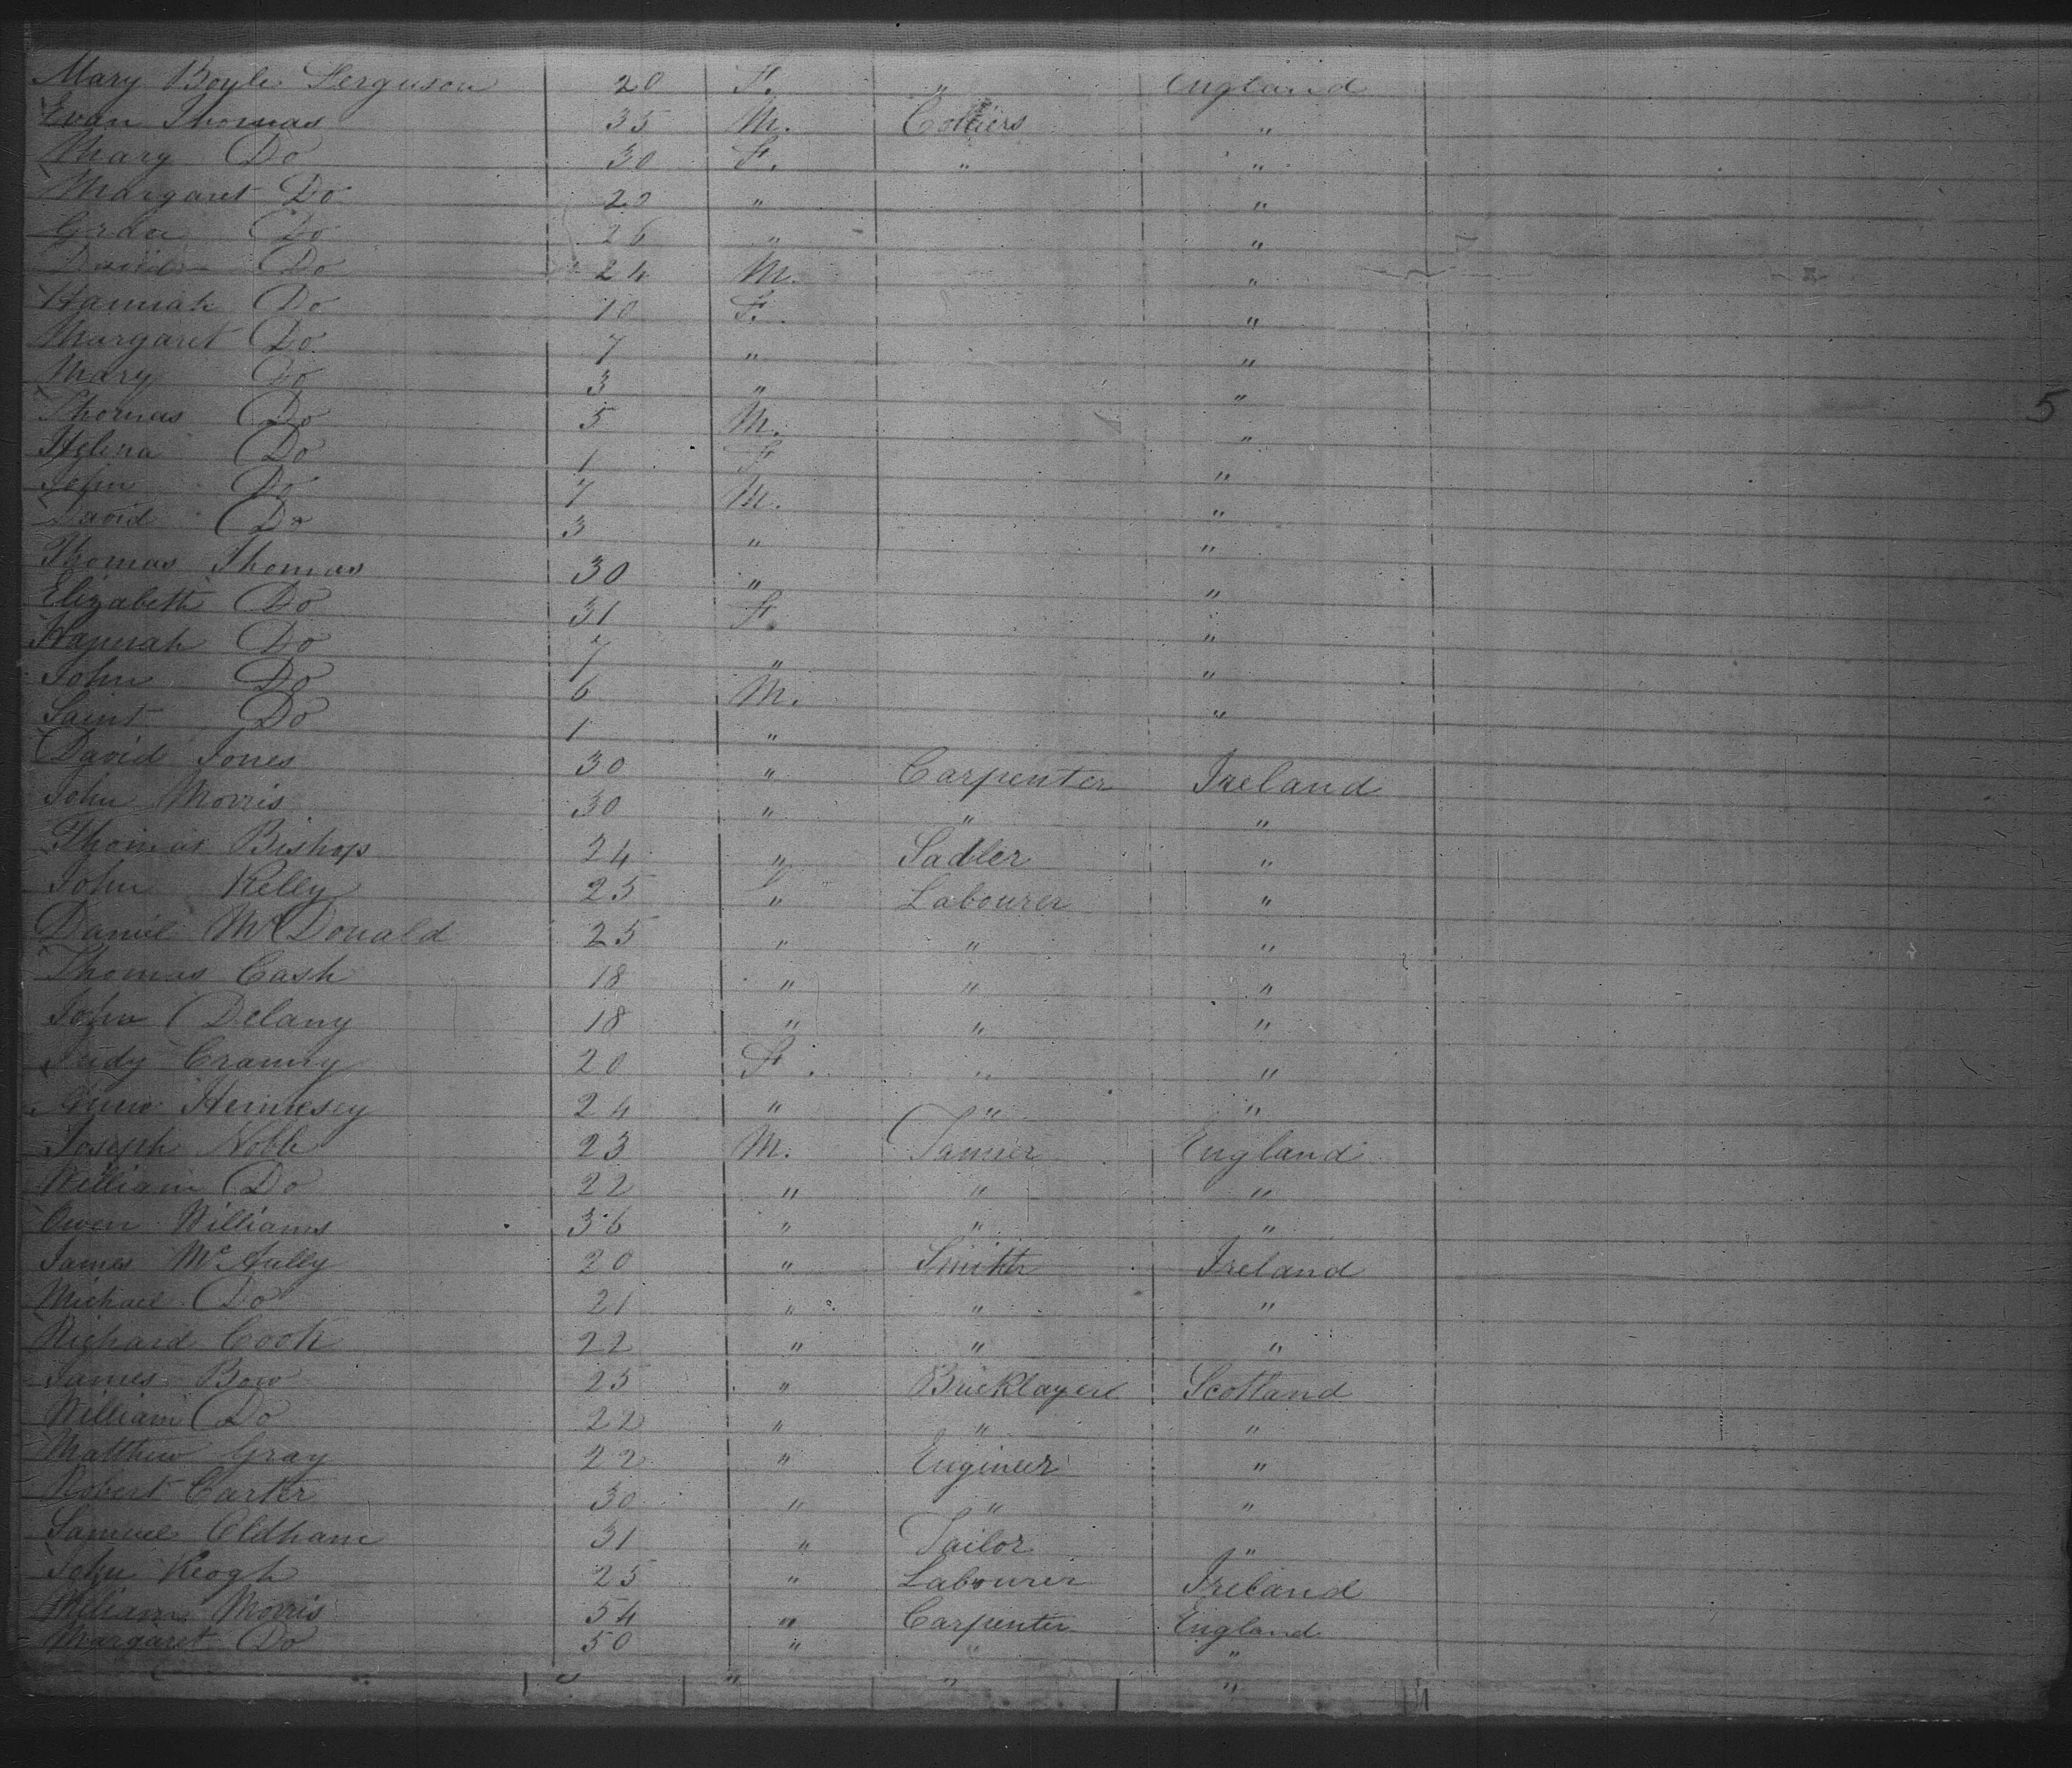 Mary Boyle Ferguson 20 F. " England
Evan Thomas 35 M. Colliers "
Mary Do 30 F. " "
Margaret Do 22 " "
Grace Do 26 " "
David Do 24 M. "
Hannah Do 10 F. "
Margaret Do 7 " "
Mary Do 3 " "
Thomas Do 5 M. "
5
Helena Do 1 F "
John Do 7 M. "
David Do 3 " "
Thomas Thomas 30 " "
Elizabeth Do 31 F. "
Hannah Do 7 " "
John Do 6 M. "
Saint Do 1 "
David Jones 30 " Carpenter Ireland
John Morris 30 " " "
Thomas Bishop 24 " Sadler "
John Kelly 25 " Labourer "
Daniel McDonald 25 " " "
Thomas Cash 18 " " "
John Delany 18 " " "
Judy Cranny 20 F. " "
Hennesey 24 " " "
Joseph Noble 23 M. Tanner England
William Do 22 " " "
Owen Williams 36 " " "
James Mc 20 " Smith Ireland
Michael Do 21 " " "
Richard Cook 22 " " "
James Bow 25 " Bricklayer Scotland
William Do 22 " " "
Matthew Gray 22 " Engineer "
Robert Carter 30 " " "
Samuel Oldham 31 " Tailor "
John Keogh 25 " Labourer Ireland
William Morris 54 " Carpenter England
Margaret Do 50 " " "
" " "